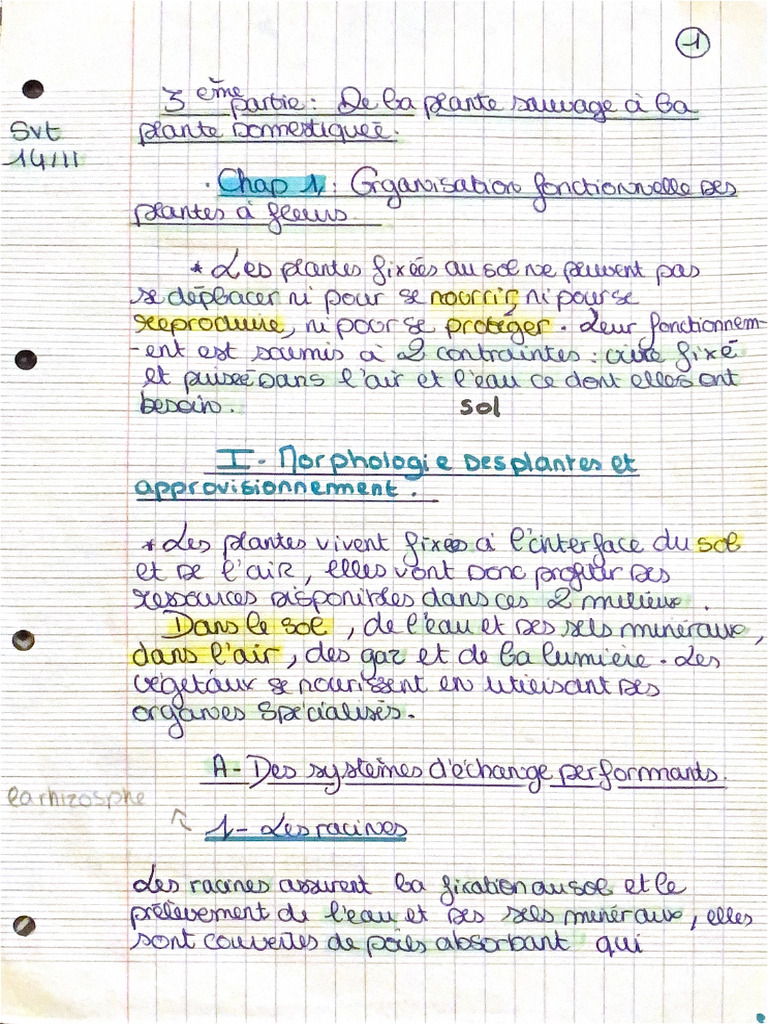 1
3ème partie : De la plante sauvage à la
plante domestiquée.
Svt
14/11
. Chap 1 : Organisation fonctionnelle des
plantes à fleurs.
* Les plantes fixées au sol ne peuvent pas
se déplacer ni pour se nourrir, ni pour se
reproduire, ni pour se protéger. Leur fonctionnem-
-ent est soumis à 2 contraintes : vivre fixé
et puisée dans l'air et l'eau ce dont elles ont
besoin. sol
I - Morphologie des plantes et
approvisionnement.
* Les plantes vivent fixées à l'interface du sol
et de l'air, elles vont donc profiter des
ressources disponibles dans ces 2 milieux.
Dans le sol, de l'eau et des sels minéraux,
dans l'air, des gaz et de la lumière. Les
végétaux se nourissent en utilisant des
organes spécialisés.
A - Des systèmes d'échange performants.
la rhizosphe
1 - Les racines
Les racines assurent la fixation au sol et le
prélèvement de l'eau et des sels minéraux, elles
sont couvertes de poils absorbant qui